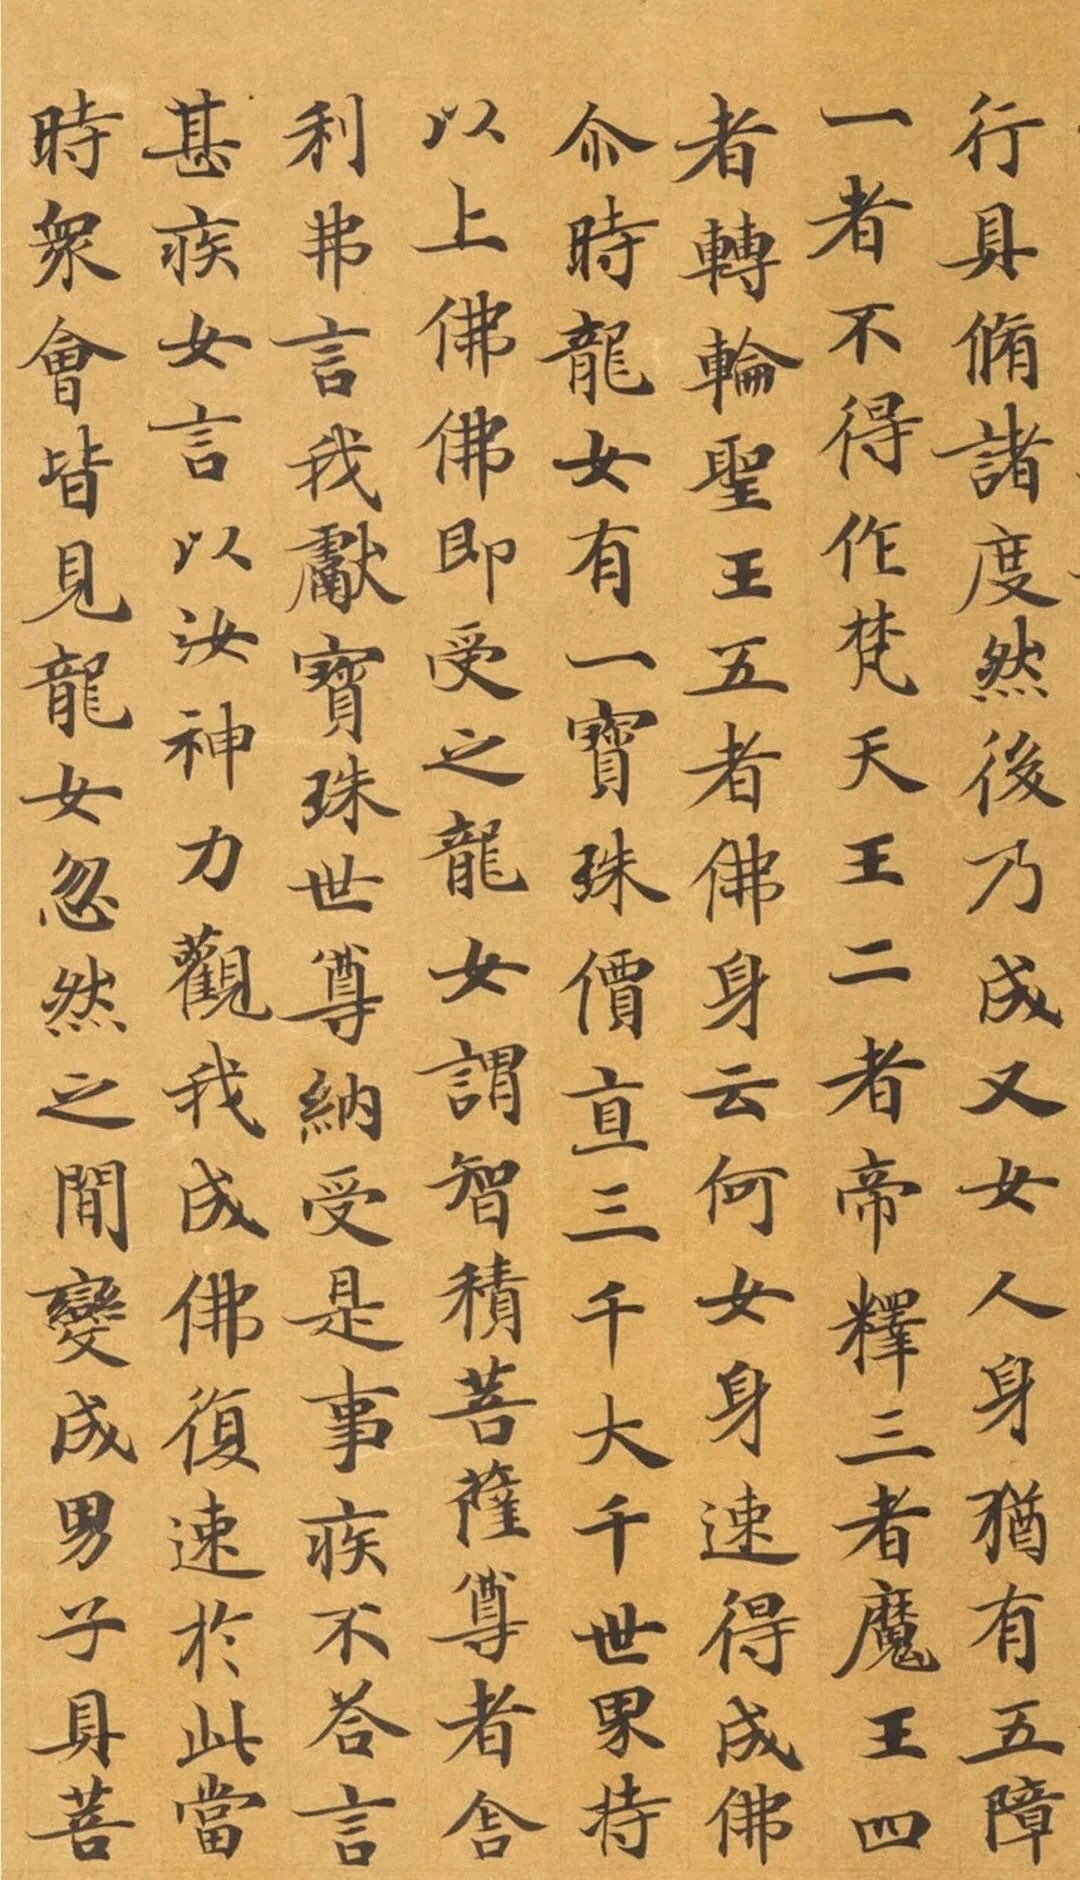 行具脩諸度然後乃成又女人身猶有五障
一者不得作梵天王二者帝釋三者魔王四
者轉輪聖王五者佛身云何女身速得成佛
尒時龍女有一寶珠價直三千大千世界持
以上佛佛即受之龍女謂智積菩薩尊者舍
利弗言我獻寶珠世尊納受是事疾不答言
甚疾女言以汝神力觀我成佛復速於此當
時衆會皆見龍女忽然之間變成男子具菩